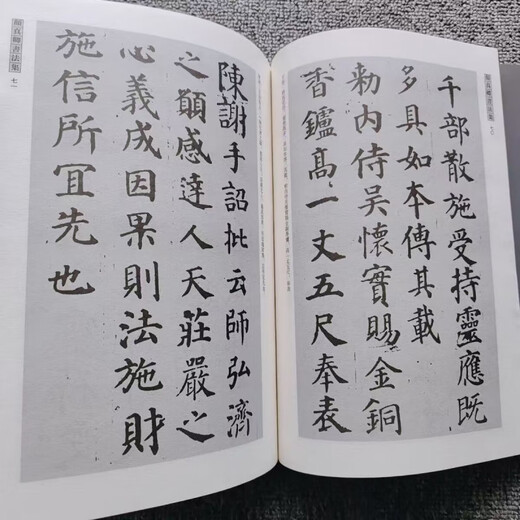 千部散施受持靈應既
多具如本傳其載
勑内侍吳懷實賜金銅
香鑪高一丈五尺奉表
陳謝手詔批云師弘濟
之願感達人天莊嚴之
心義成因果則法施財
施信所冝先也
顏真卿書法集
七一